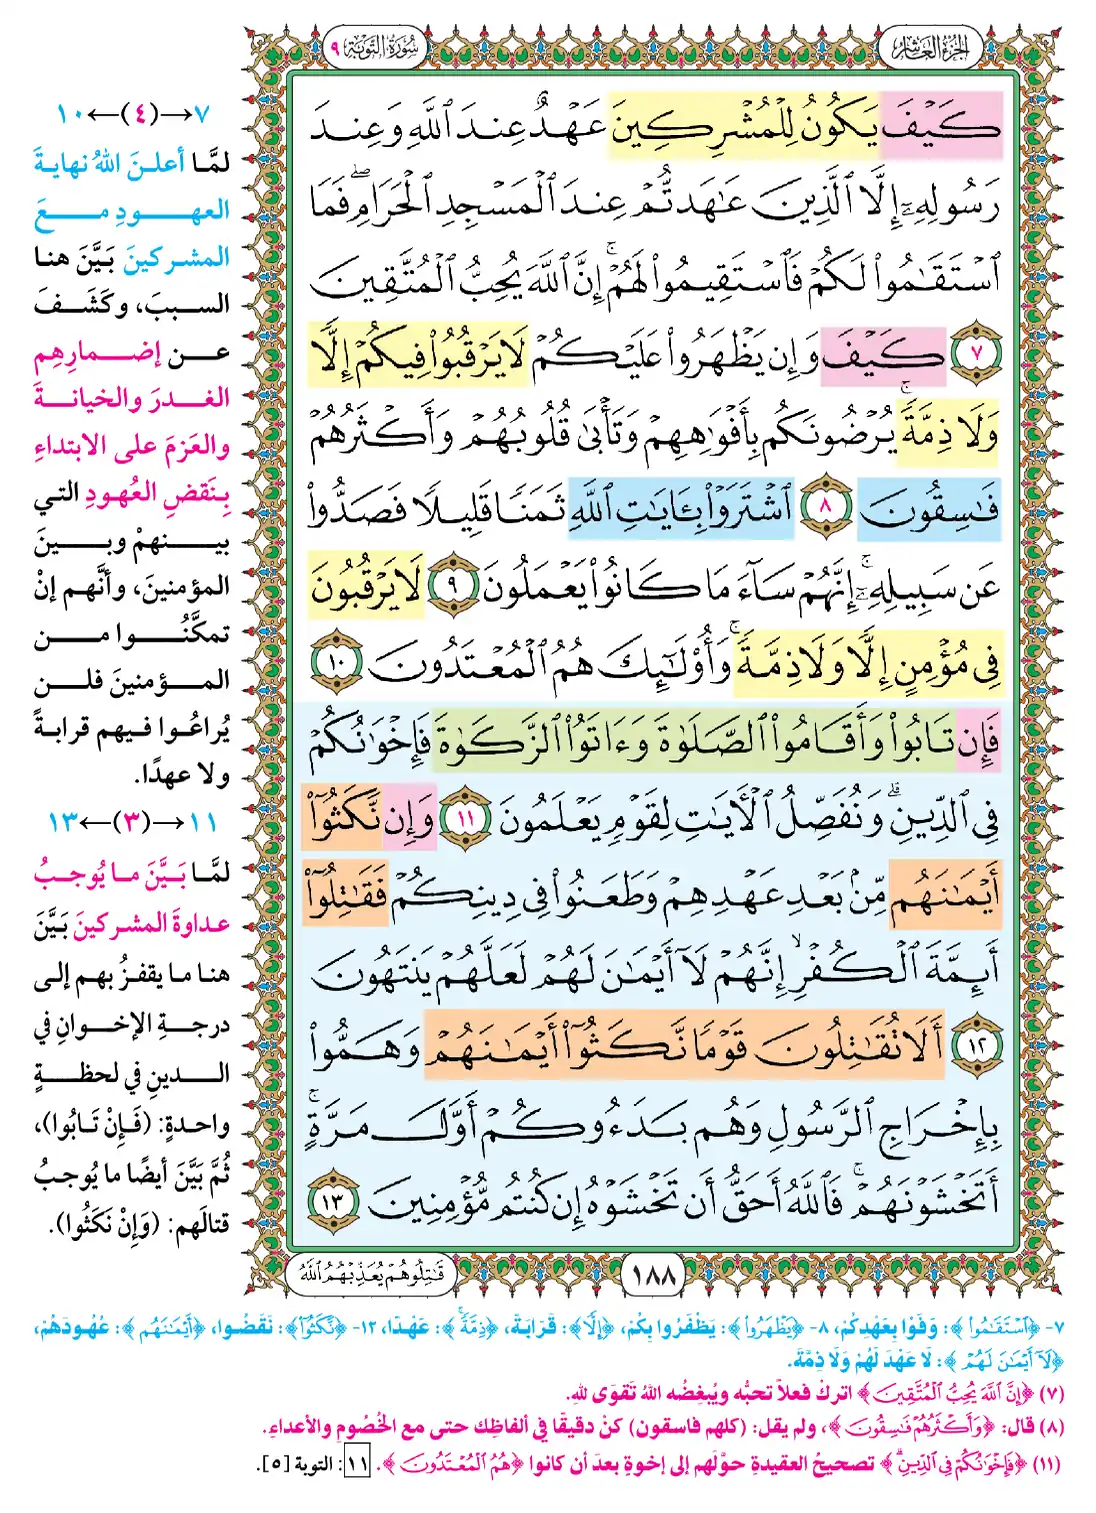 الجزء العاشر
سورة التوبة ٩
كَيْفَ يَكُونُ لِلْمُشْرِكِينَ عَهْدٌ عِندَ ٱللَّهِ وَعِندَ
رَسُولِهِۦٓ إِلَّا ٱلَّذِينَ عَٰهَدتُّمْ عِندَ ٱلْمَسْجِدِ ٱلْحَرَامِۖ فَمَا
ٱسْتَقَٰمُوا۟ لَكُمْ فَٱسْتَقِيمُوا۟ لَهُمْۚ إِنَّ ٱللَّهَ يُحِبُّ ٱلْمُتَّقِينَ
٧ كَيْفَ وَإِن يَظْهَرُوا۟ عَلَيْكُمْ لَا يَرْقُبُوا۟ فِيكُمْ إِلًّا
وَلَا ذِمَّةًۚ يُرْضُونَكُم بِأَفْوَٰهِهِمْ وَتَأْبَىٰ قُلُوبُهُمْ وَأَكْثَرُهُمْ
فَٰسِقُونَ ٨ ٱشْتَرَوْا۟ بِـَٔايَٰتِ ٱللَّهِ ثَمَنًا قَلِيلًا فَصَدُّوا۟
عَن سَبِيلِهِۦٓۚ إِنَّهُمْ سَآءَ مَا كَانُوا۟ يَعْمَلُونَ ٩ لَا يَرْقُبُونَ
فِى مُؤْمِنٍ إِلًّا وَلَا ذِمَّةًۚ وَأُو۟لَٰٓئِكَ هُمُ ٱلْمُعْتَدُونَ ١٠
فَإِن تَابُوا۟ وَأَقَامُوا۟ ٱلصَّلَوٰةَ وَءَاتَوُا۟ ٱلزَّكَوٰةَ فَإِخْوَٰنُكُمْ
فِى ٱلدِّينِۗ وَنُفَصِّلُ ٱلْءَايَٰتِ لِقَوْمٍ يَعْلَمُونَ ١١ وَإِن نَّكَثُوٓا۟
أَيْمَٰنَهُم مِّنۢ بَعْدِ عَهْدِهِمْ وَطَعَنُوا۟ فِى دِينِكُمْ فَقَٰتِلُوٓا۟
أَئِمَّةَ ٱلْكُفْرِۙ إِنَّهُمْ لَآ أَيْمَٰنَ لَهُمْ لَعَلَّهُمْ يَنتَهُونَ
١٢ أَلَا تُقَٰتِلُونَ قَوْمًا نَّكَثُوٓا۟ أَيْمَٰنَهُمْ وَهَمُّوا۟
بِإِخْرَاجِ ٱلرَّسُولِ وَهُم بَدَءُوكُمْ أَوَّلَ مَرَّةٍۚ
أَتَخْشَوْنَهُمْۚ فَٱللَّهُ أَحَقُّ أَن تَخْشَوْهُ إِن كُنتُم مُّؤْمِنِينَ ١٣
١٨٨
قَٰتِلُوهُمْ يُعَذِّبْهُمُ ٱللَّهُ
٧→(٤)←١٠
لمَّا أعلنَ اللهُ نهايةَ
العهودِ معَ
المشركينَ بَيَّنَ هنا
السببَ، وكَشَفَ
عن إضمارِهِم
الغدرَ والخيانةَ
والعَزمَ على الابتداءِ
بِنَقضِ العُهودِ التي
بينهمْ وبينَ
المؤمنينَ، وأنَّهم إنْ
تمكَّنُوا من
المؤمنينَ فلن
يُراعُوا فيهم قرابةً
ولا عهدًا.
١١→(٣)←١٣
لمَّا بَيَّنَ ما يُوجبُ
عداوةَ المشركينَ بَيَّنَ
هنا ما يقفزُ بهم إلى
درجةِ الإخوانِ في
الدينِ في لحظةٍ
واحدةٍ: (فَإِنْ تَابُوا)،
ثُمَّ بَيَّنَ أيضًا ما يُوجبُ
قتالَهم: (وَإِنْ نَكَثُوا).
٧- ﴿ٱسْتَقَٰمُوا۟﴾: وَفَوْا بِعَهْدِكُمْ، ٨- ﴿يَظْهَرُوا۟﴾: يَظْفَرُوا بِكُمْ، ﴿إِلًّا﴾: قَرَابَةً، ﴿ذِمَّةًۚ﴾: عَهْدًا، ١٢- ﴿نَّكَثُوٓا۟﴾: نَقَضُوا، ﴿أَيْمَٰنَهُم﴾: عُهُودَهُمْ،
﴿لَآ أَيْمَٰنَ لَهُمْ﴾: لَا عَهْدَ لَهُمْ وَلَا ذِمَّةَ.
(٧) ﴿إِنَّ ٱللَّهَ يُحِبُّ ٱلْمُتَّقِينَ﴾ اتركْ فعلاً تحبُّه ويُبغضُه اللهُ تَقوَى للهِ.
(٨) قال: ﴿وَأَكْثَرُهُمْ فَٰسِقُونَ﴾، ولم يقل: (كلهم فاسقون) كنْ دقيقًا في ألفاظِك حتى مع الخُصُومِ والأعداءِ.
(١١) ﴿فَإِخْوَٰنُكُمْ فِى ٱلدِّينِۗ﴾ تصحيحُ العقيدةِ حوَّلَهم إلى إخوةٍ بعدَ أن كانوا ﴿هُمُ ٱلْمُعْتَدُونَ﴾. ١١: التوبة [٥].